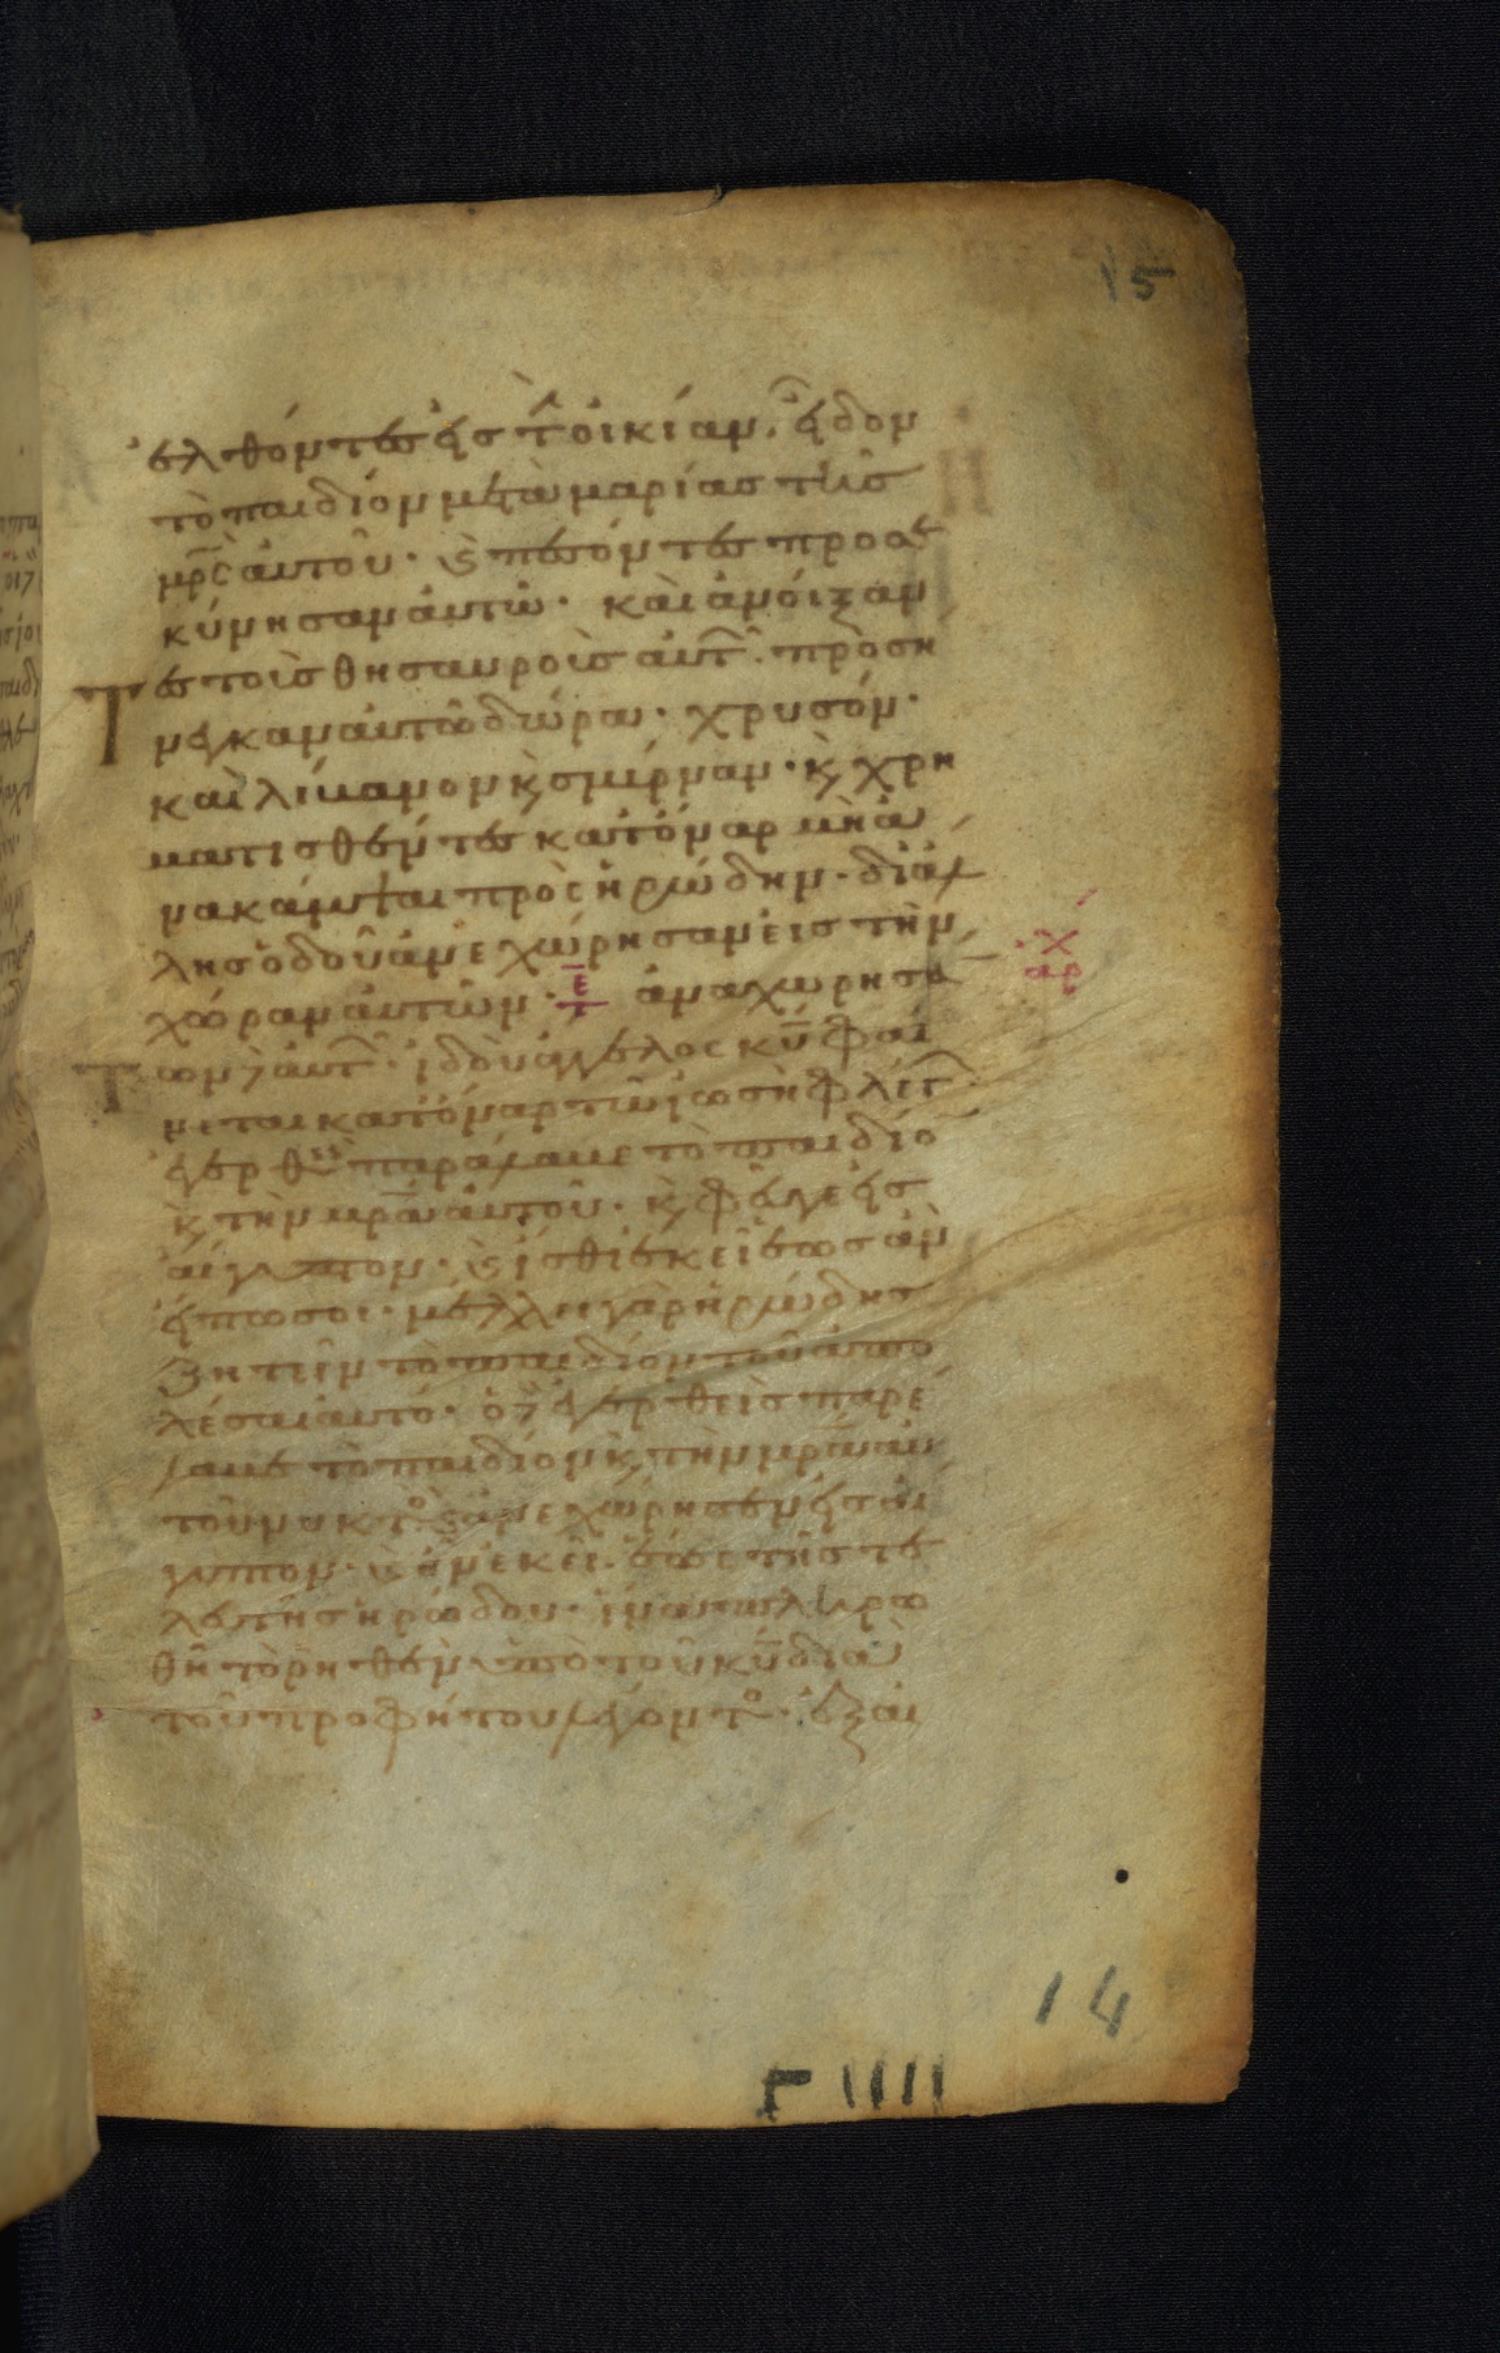 15
ἐλθόντες εἰς τ̂ οἰκίαν. εἶδον
τὸ παιδίον μετὰ μαρίας τῆς
μρ̅ς αὐτοῦ· ϗ πεσόντες προσε
κύνησαν αὐτῶ· καὶ ἀνοίξαν
τες τοὺς θησαυροὺς αὐτ̂. προση
νεγκαν αὐτῶ δῶρα· χρυσόν·
καὶ λίβανον ϗ σμύρναν· ϗ χρη
ματισθέντες κατόναρ μὴ ἀ
νακάμψαι πρὸς ἡρώδην· δι' ἄλ
λης ὁδοῦ ἀνεχώρησαν εἰς τὴν
χώραν αὐτῶν· ε̅ ἀναχωρησα
χ
αρ
των δ αὐτ̂· ἰδοὺ ἄγγελος κ̅υ φαί
νεται κατόναρ τῶ ἰωσὴφ λέγ̂
ἐγερθεὶς παράλαβε τὸ παιδίο
ϗ τὴν μρ̅α αὐτοῦ· ϗ φεῦγε εἰς
αἴγυπτον· ϗ ἴσθι ἐκεῖ ἕως ἂν
εἴπω σοι· μέλλει γὰρ ἡρώδης
ζητεῖν τὸ παιδίον τοῦ ἀπο
λέσαι αὐτό· ὁ δ ἐγερθεὶς παρέ
λαβε τὸ παιδίον ϗ τὴν μρ̅α αὐ
τοῦ νυκτὸ̣ς ϗ ἀνεχώρησεν εἰς αἴ
γυπτον· ϗ ἦν ἐκεῖ. ἕως τῆς τε
λευτῆς ἡρώδου· ἵνα πληρω
θῆ τὸ ῥηθὲν ὑπὸ τοῦ κ̅υ διὰ
τοῦ προφήτου λέγοντο· ἐξ αἰ
14
Γ ΙΙΙΙ